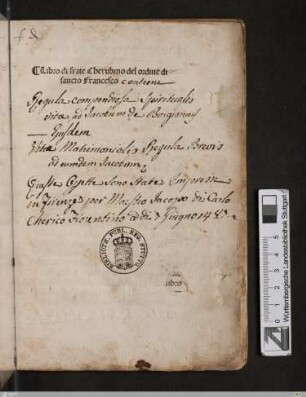 f. d.
Libro di frate Cherubino del ordine di
sancto Francesco
Regula compendiosa Spiritualis
vita ad Jacobum de Bongiannis
Ejusdem
Vita Matrimonialis Regula Brevis
ad eumdem Jacobum
Queste Operte Sono State Impresse
in Firenze per Maestro Jacopo di Carlo
Cherico Fiorentino a di Giugno 148
BIBLIOTH. PUBL. REG. STUTTG.
Württembergische Landesbibliothek Stuttgart